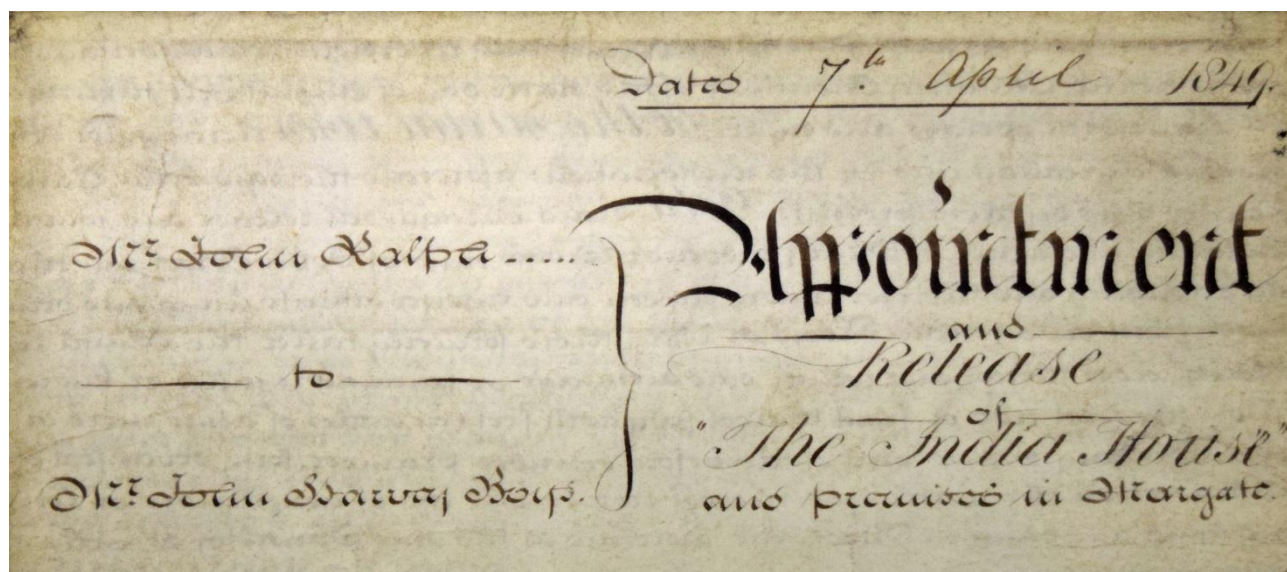 Dated 7th April 1849.
Mr. John Ralph .....
to
Mr. John Harvey Boys.
Appointment
and
Release
of
"The India House"
and premises in Margate.